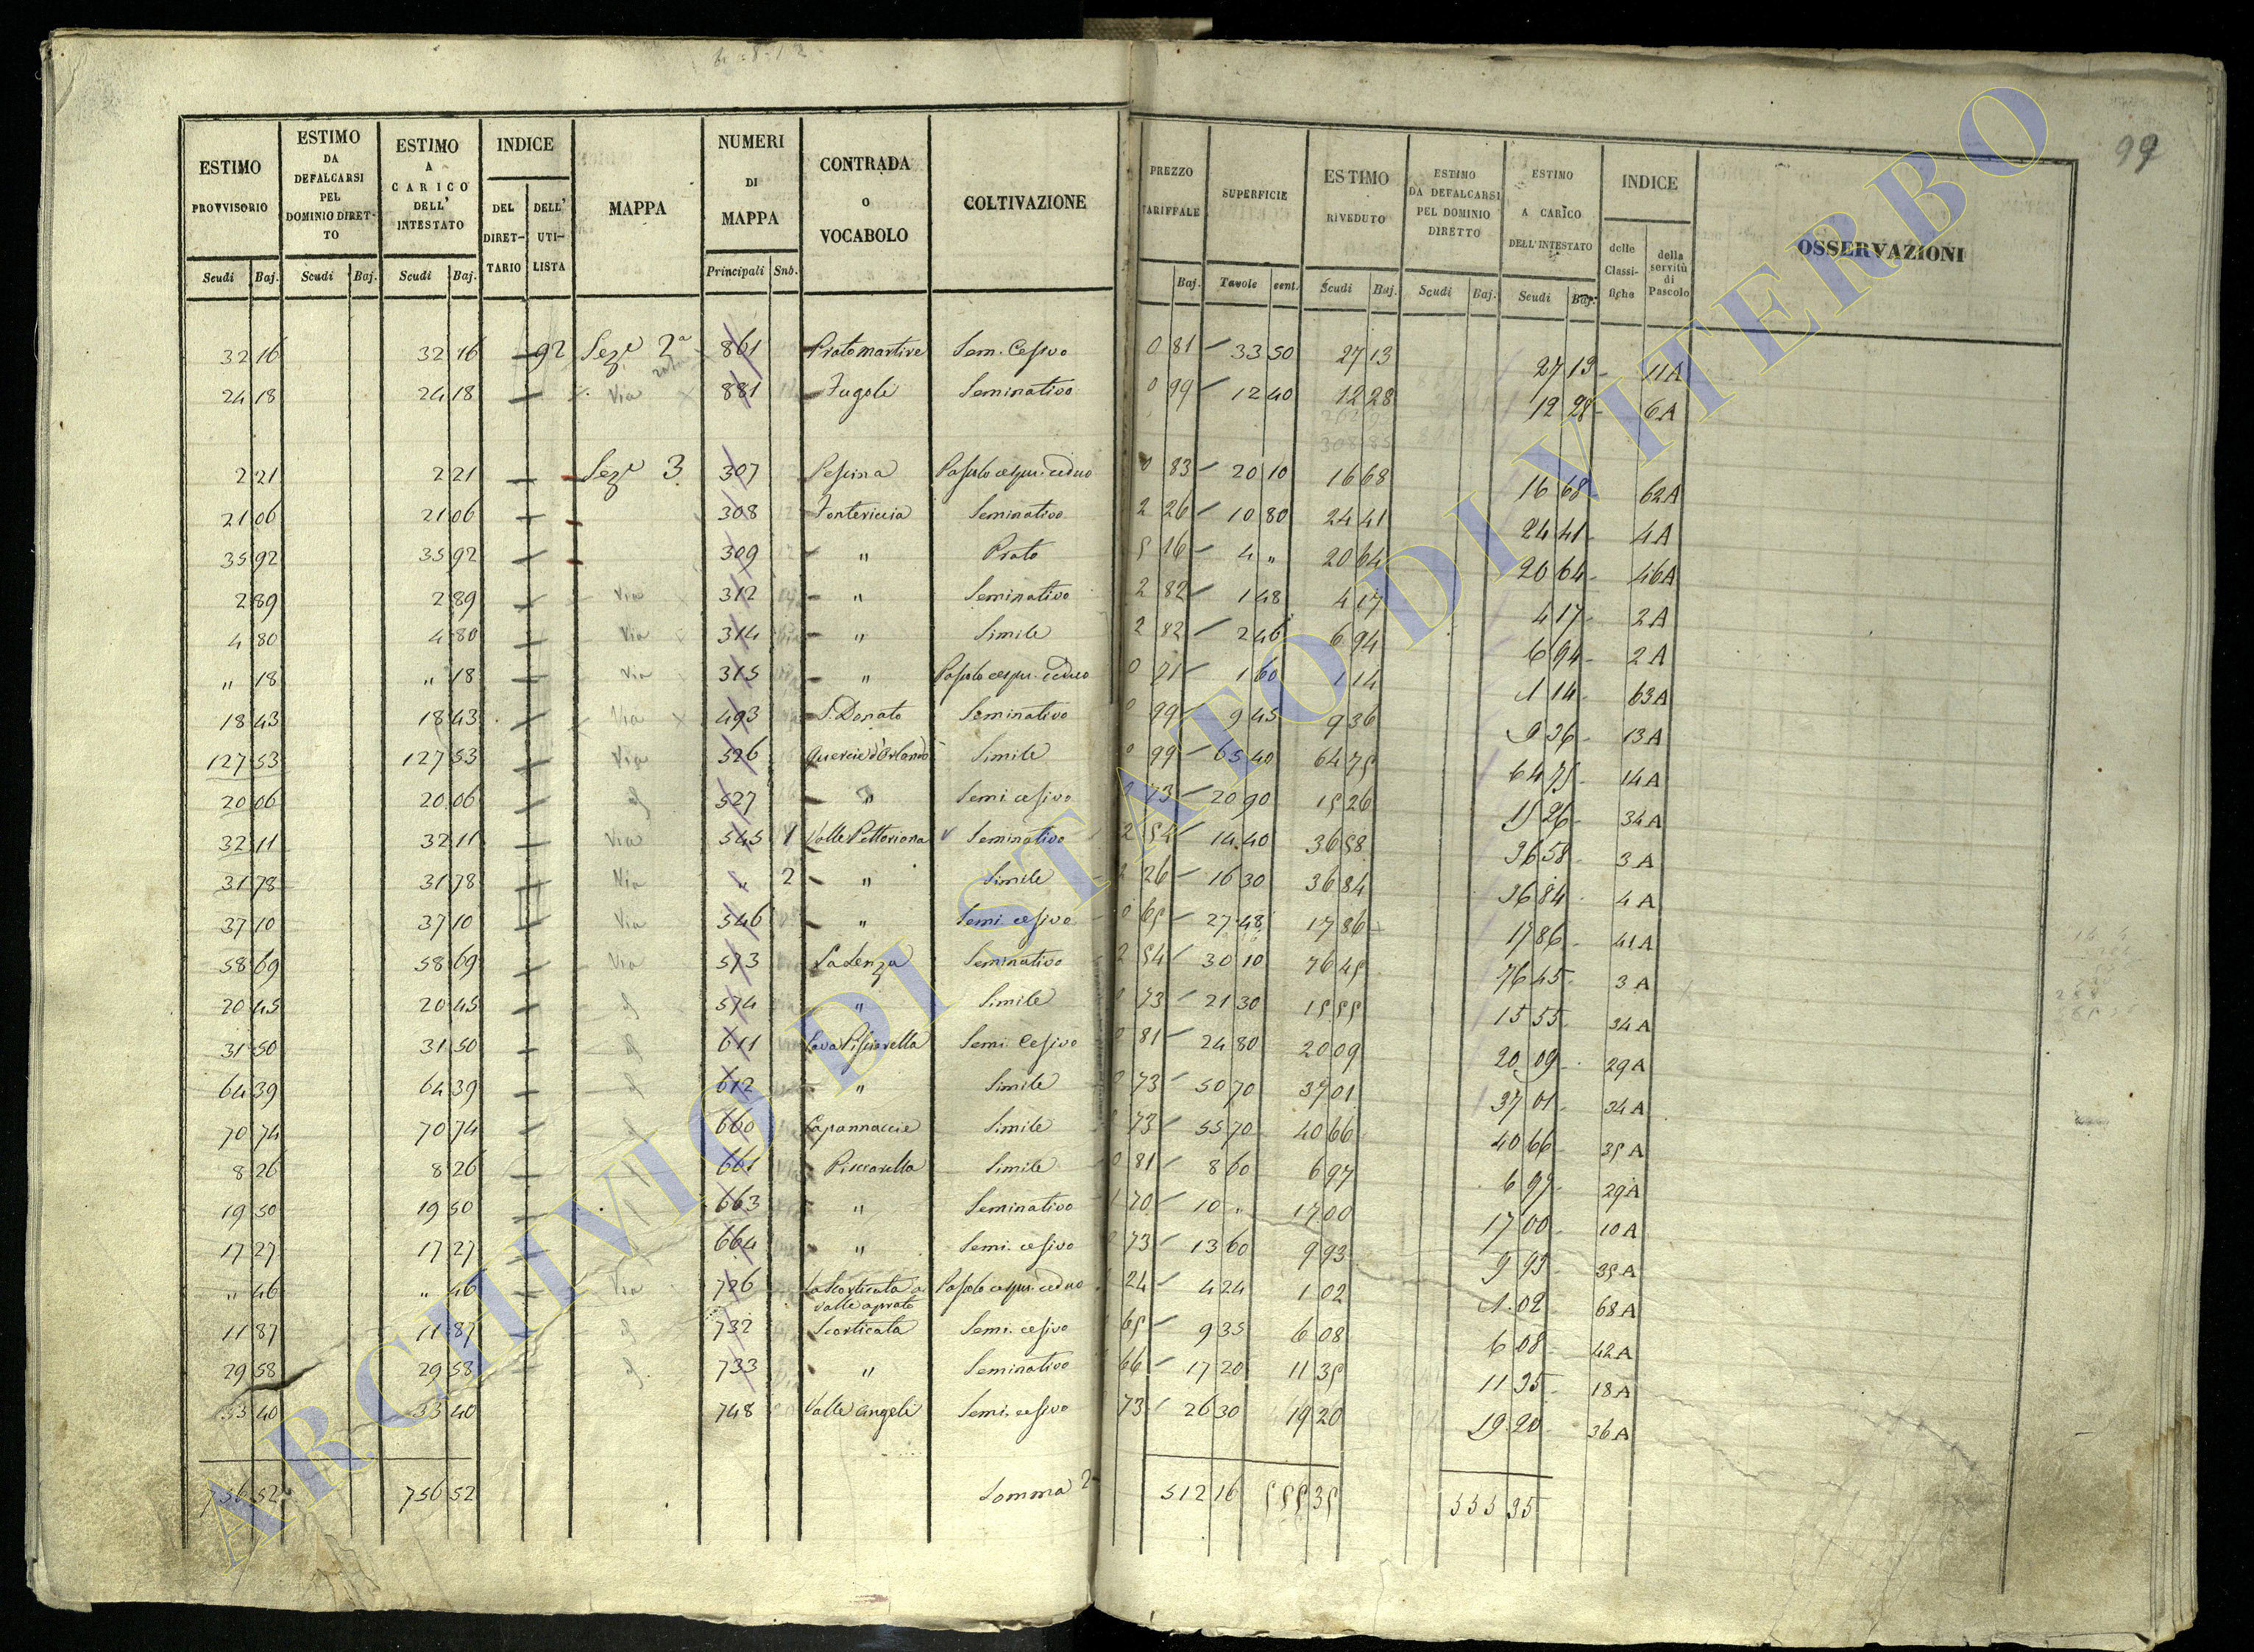 99
ESTIMO PROVVISORIO | ESTIMO DA DEFALCARSI PEL DOMINIO DIRETTO | ESTIMO A CARICO DELL' INTESTATO | INDICE DEL DIRETTARIO | DELL' UTILISTA | MAPPA | NUMERI DI MAPPA | CONTRADA O VOCABOLO | COLTIVAZIONE | PREZZO TARIFFALE | SUPERFICIE | ESTIMO RIVEDUTO | ESTIMO DA DEFALCARSI PEL DOMINIO DIRETTO | ESTIMO A CARICO DELL' INTESTATO | INDICE delle Classifiche | della servitù di Pascolo | OSSERVAZIONI
Scudi | Baj. | Scudi | Baj. | Scudi | Baj. | Principali | Sub. | Baj. | Tavole | cent. | Scudi | Baj. | Scudi | Baj. | Scudi | Baj.
32 16 | 32 16 | 92 | Sez.e 2a | 861 | Protomartire | Sem. Cesivo | 0 81 | 33 50 | 27 13 | 27 13 | 11A
24 18 | 24 18 | Via | 881 | Fugole | Seminativo | 0 99 | 12 40 | 12 28 | 12 28 | 6A
2 21 | 2 21 | Sez.e 3 | 307 | Pescina | Pascolo cespu. ceduo | 0 83 | 20 10 | 16 68 | 16 68 | 62A
21 06 | 21 06 | 308 | Fontericcia | Seminativo | 2 26 | 10 80 | 24 41 | 24 41 | 4A
35 92 | 35 92 | 309 | " | Prato | 5 16 | 4 " | 20 64 | 20 64 | 46A
2 89 | 2 89 | Via | 312 | " | Seminativo | 2 82 | 1 48 | 4 17 | 4 17 | 2A
4 80 | 4 80 | Via | 314 | " | Simile | 2 82 | 2 46 | 6 94 | 6 94 | 2A
" 18 | " 18 | Via | 315 | " | Pascolo cespu. ceduo | 0 71 | 1 60 | 1 14 | 1 14 | 63A
18 43 | 18 43 | Via | 493 | S. Donato | Seminativo | 0 99 | 9 45 | 9 36 | 9 36 | 13A
127 53 | 127 53 | Via | 526 | Quercie d'Orlando | Simile | 0 99 | 65 40 | 64 75 | 64 75 | 14A
20 06 | 20 06 | 527 | " | Semi cesivo | 73 | 20 90 | 15 26 | 15 26 | 34A
32 11 | 32 11 | Via | 545 | 1 | Valle Pettoriana | Seminativo | 2 54 | 14 40 | 36 58 | 36 58 | 3A
31 78 | 31 78 | Via | " | 2 | " | Simile | 2 26 | 16 30 | 36 84 | 36 84 | 4A
37 10 | 37 10 | Via | 546 | " | Semi. cesivo | 0 65 | 27 48 | 17 86 | 17 86 | 41A
58 69 | 58 69 | Via | 573 | Sadenza | Seminativo | 2 54 | 30 10 | 76 45 | 76 45 | 3A
20 45 | 20 45 | 574 | " | Simile | 73 | 21 30 | 15 55 | 15 55 | 34A
31 50 | 31 50 | 611 | Cava Pisciarella | Semi Cesivo | 81 | 24 80 | 20 09 | 20 09 | 29A
64 39 | 64 39 | 612 | " | Simile | 73 | 50 70 | 37 01 | 37 01 | 34A
70 74 | 70 74 | 660 | Capannaccie | Simile | 73 | 55 70 | 40 66 | 40 66 | 35A
8 26 | 8 26 | 661 | Pisciarella | Simile | 0 81 | 8 60 | 6 97 | 6 97 | 29A
19 50 | 19 50 | 663 | " | Seminativo | 1 70 | 10 " | 17 00 | 17 00 | 10A
17 27 | 17 27 | 664 | " | Semi. cesivo | 73 | 13 60 | 9 93 | 9 93 | 35A
" 46 | " 46 | Via | 726 | La Scorticata o | Pascolo cespu. ceduo | 24 | 4 24 | 1 02 | 1 02 | 68A
Valle aprato
11 87 | 11 87 | 732 | Scorticata | Semi. cesivo | 65 | 9 35 | 6 08 | 6 08 | 42A
29 58 | 29 58 | 733 | " | Seminativo | 66 | 17 20 | 11 35 | 11 35 | 18A
33 40 | 33 40 | 748 | Valle Angeli | Semi. cesivo | 73 | 26 30 | 19 20 | 19 20 | 36A
756 52 | 756 52 | Somma 2 | 512 16 | 555 35 | 555 35
ARCHIVIO DI STATO DI VITERBO